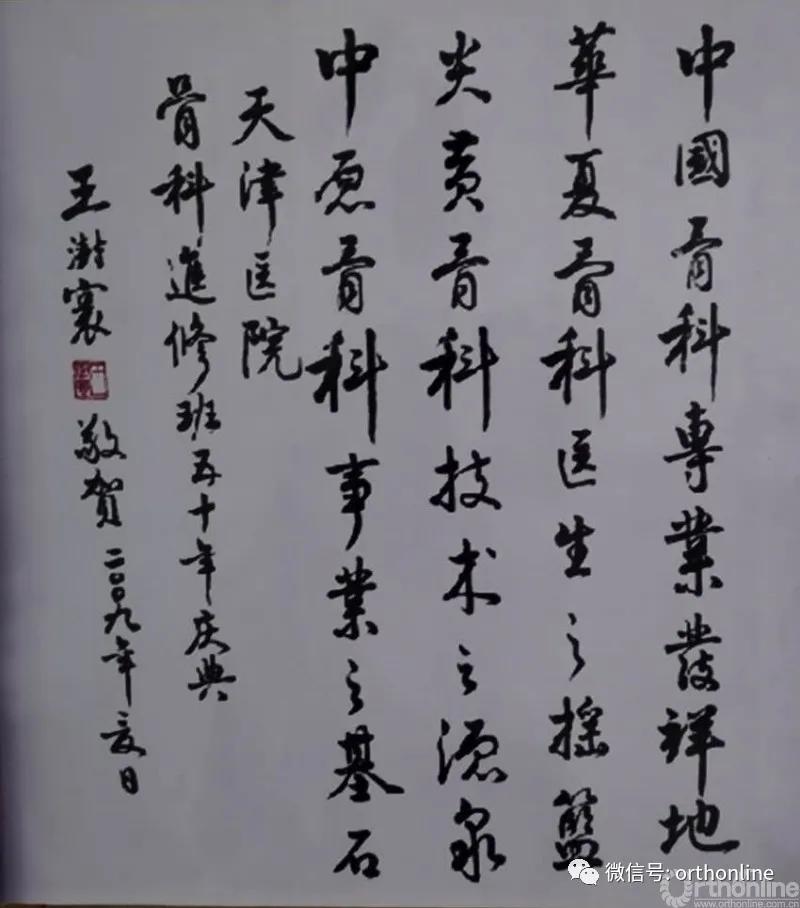 中國骨科專業發祥地
華夏骨科医生之摇籃
炎黄骨科技术之源泉
中原骨科事業之基石
天津医院
骨科進修班五十年庆典
王澍寰
敬贺二〇〇九年夏日
微信号: orthonline
Orthonline
www.orthonline.com.cn